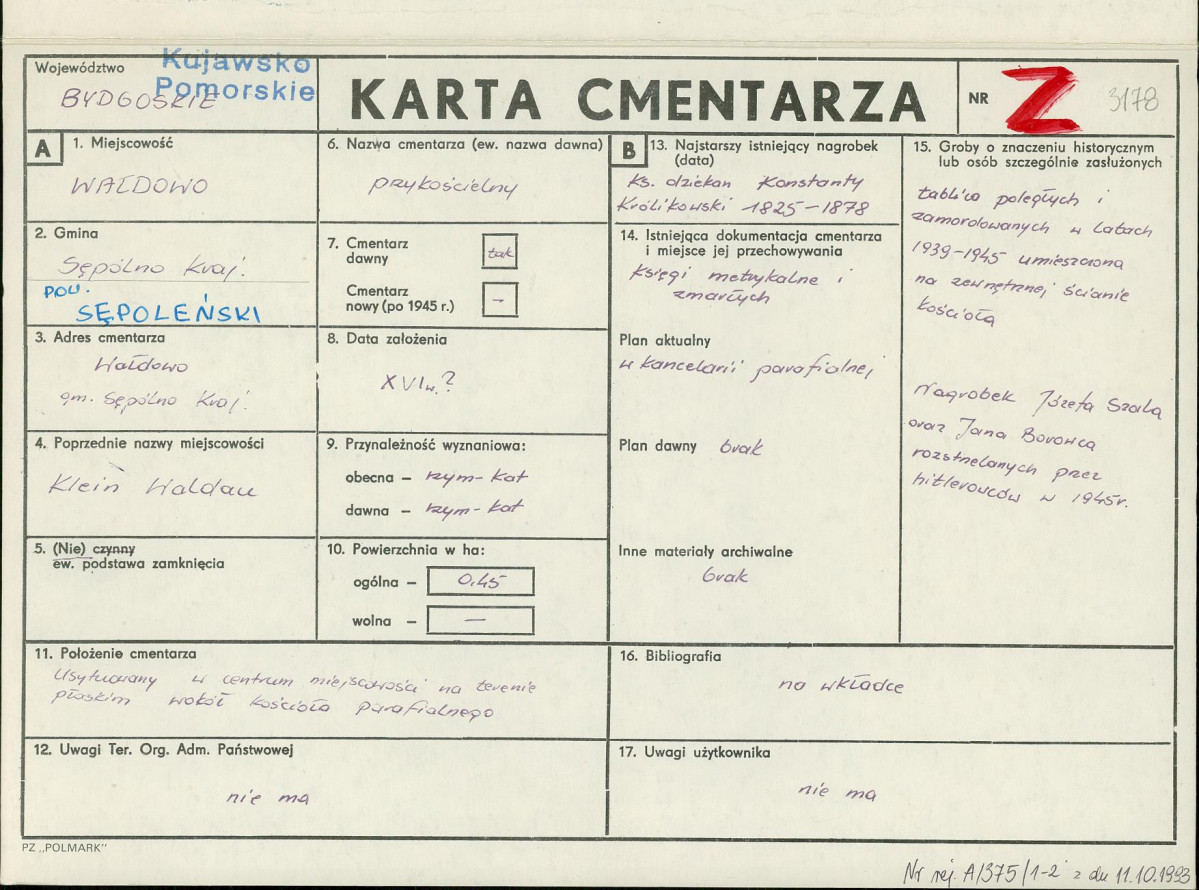 Województwo
Kujawsko
Pomorskie
BYDGOSKIE
KARTA CMENTARZA
NR
Z
3178
A
1. Miejscowość
WAŁDOWO
2. Gmina
Sępólno Kraj.
pow.
SĘPOLEŃSKI
3. Adres cmentarza
Wałdowo
gm. Sępólno Kraj.
4. Poprzednie nazwy miejscowości
Klein Waldau
5. (Nie) czynny
ew. podstawa zamknięcia
6. Nazwa cmentarza (ew. nazwa dawna)
przykościelny
7. Cmentarz
dawny
tak
Cmentarz
nowy (po 1945 r.)
—
8. Data założenia
XVI w. ?
9. Przynależność wyznaniowa:
obecna – rzym-kat
dawna – rzym-kat
10. Powierzchnia w ha:
ogólna – 0.45
wolna – —
11. Położenie cmentarza
Usytuowany w centrum miejscowości na terenie
płaskim wokół kościoła parafialnego
12. Uwagi Ter. Org. Adm. Państwowej
nie ma
B
13. Najstarszy istniejący nagrobek
(data)
ks. dziekan Konstanty
Królikowski 1825-1878
14. Istniejąca dokumentacja cmentarza
i miejsce jej przechowywania
Księgi metrykalne i
zmarłych
Plan aktualny
w kancelarii parafialnej
Plan dawny brak
Inne materiały archiwalne
brak
15. Groby o znaczeniu historycznym
lub osób szczególnie zasłużonych
tablica poległych i
zamordowanych w latach
1939-1945 umieszczona
na zewnętrznej ścianie
kościoła
Nagrobek Józefa Szala
oraz Jana Borowca
rozstrzelanych przez
hitlerowców w 1945r.
16. Bibliografia
na wkładce
17. Uwagi użytkownika
nie ma
PZ „POLMARK"
Nr rej. A/375/1-2 z dn 11.10.1993